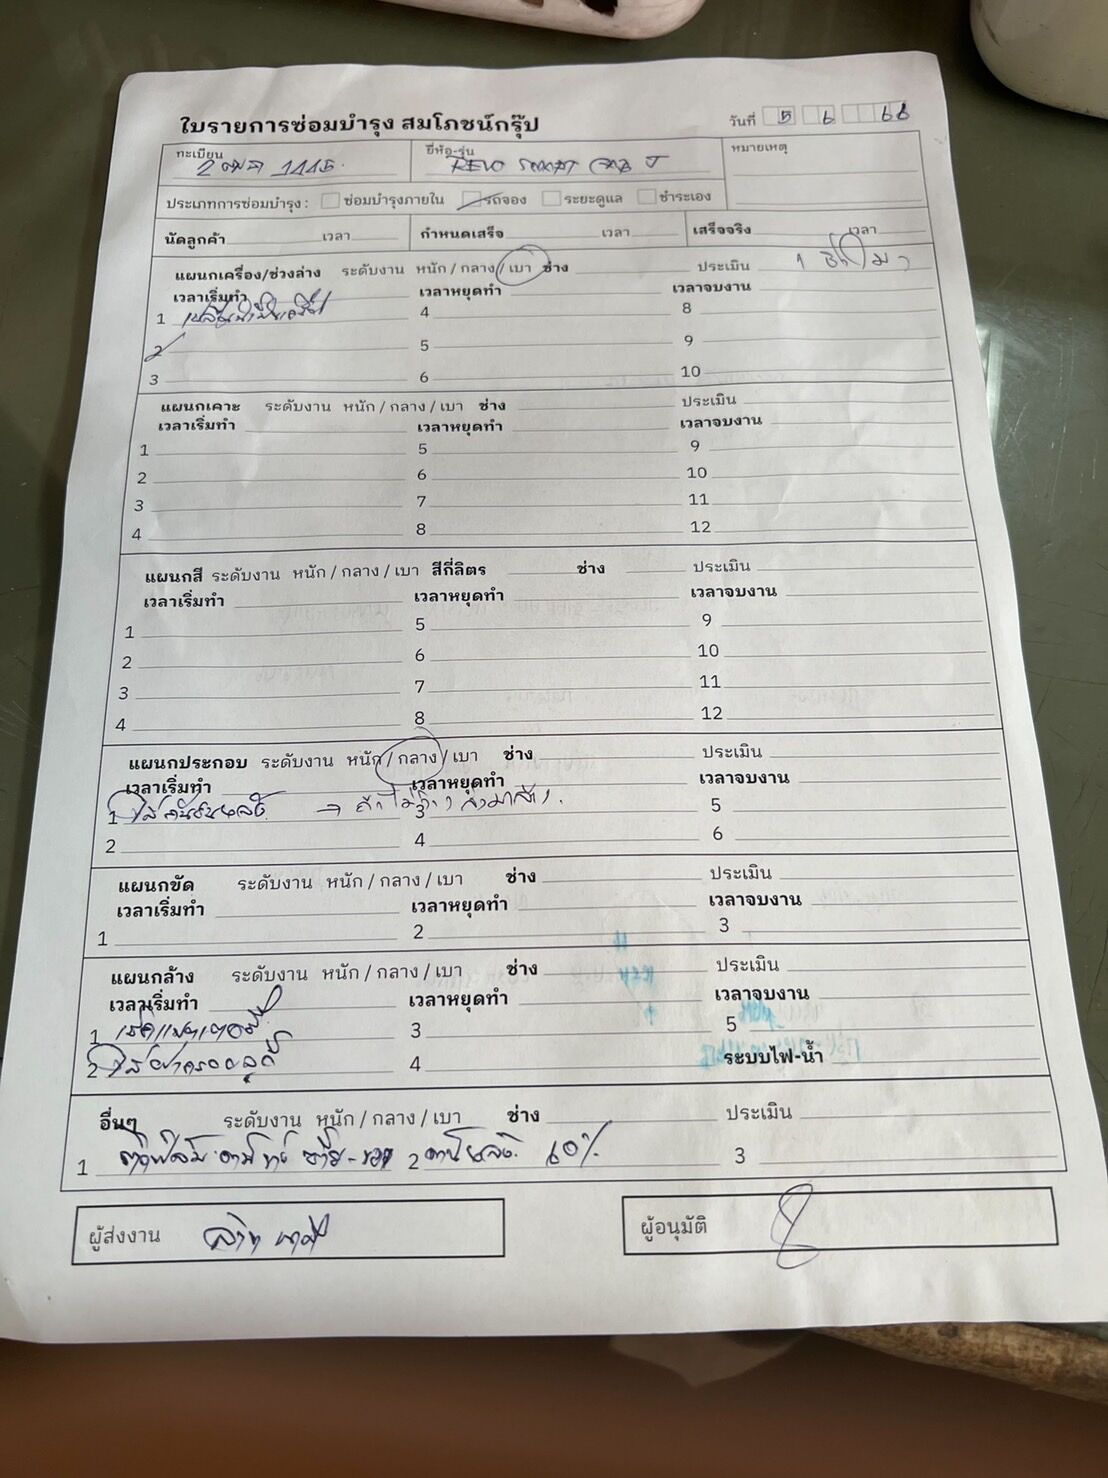 ใบรายการซ่อมบำรุง สมโภชน์กรุ๊ป
วันที่ 5 6 68
ทะเบียน 2 ฒฉ 1445
ยี่ห้อ-รุ่น REVO SMART CAB J
หมายเหตุ
ประเภทการซ่อมบำรุง : ซ่อมบำรุงภายใน รถจอง ระยะดูแล ชำระเอง
นัดลูกค้า เวลา กำหนดเสร็จ เวลา เสร็จจริง เวลา
แผนกเครื่อง/ช่วงล่าง ระดับงาน หนัก / กลาง / เบา ช่าง ประเมิน 1 ชั่วโมง
เวลาเริ่มทำ เวลาหยุดทำ เวลาจบงาน
1 เปลี่ยนน้ำมันเครื่อง 4 8
2 5 9
3 6 10
แผนกเคาะ ระดับงาน หนัก / กลาง / เบา ช่าง ประเมิน
เวลาเริ่มทำ เวลาหยุดทำ เวลาจบงาน
1 5 9
2 6 10
3 7 11
4 8 12
แผนกสี ระดับงาน หนัก / กลาง / เบา สีกี่ลิตร ช่าง ประเมิน
เวลาเริ่มทำ เวลาหยุดทำ เวลาจบงาน
1 5 9
2 6 10
3 7 11
4 8 12
แผนกประกอบ ระดับงาน หนัก / กลาง / เบา ช่าง ประเมิน
เวลาเริ่มทำ เวลาหยุดทำ เวลาจบงาน
1 ใส่กันชนหลัง → 3 5
2 4 6
แผนกขัด ระดับงาน หนัก / กลาง / เบา ช่าง ประเมิน
เวลาเริ่มทำ เวลาหยุดทำ เวลาจบงาน
1 2 3
แผนกล้าง ระดับงาน หนัก / กลาง / เบา ช่าง ประเมิน
เวลาเริ่มทำ เวลาหยุดทำ เวลาจบงาน
1 เช็คแบตเตอรี่ 3 5
2 ใส่ฝาครอบ 4 ระบบไฟ-น้ำ
อื่นๆ ระดับงาน หนัก / กลาง / เบา ช่าง ประเมิน
1 ติดฟิล์ม 2 60% 3
ผู้ส่งงาน
ผู้อนุมัติ